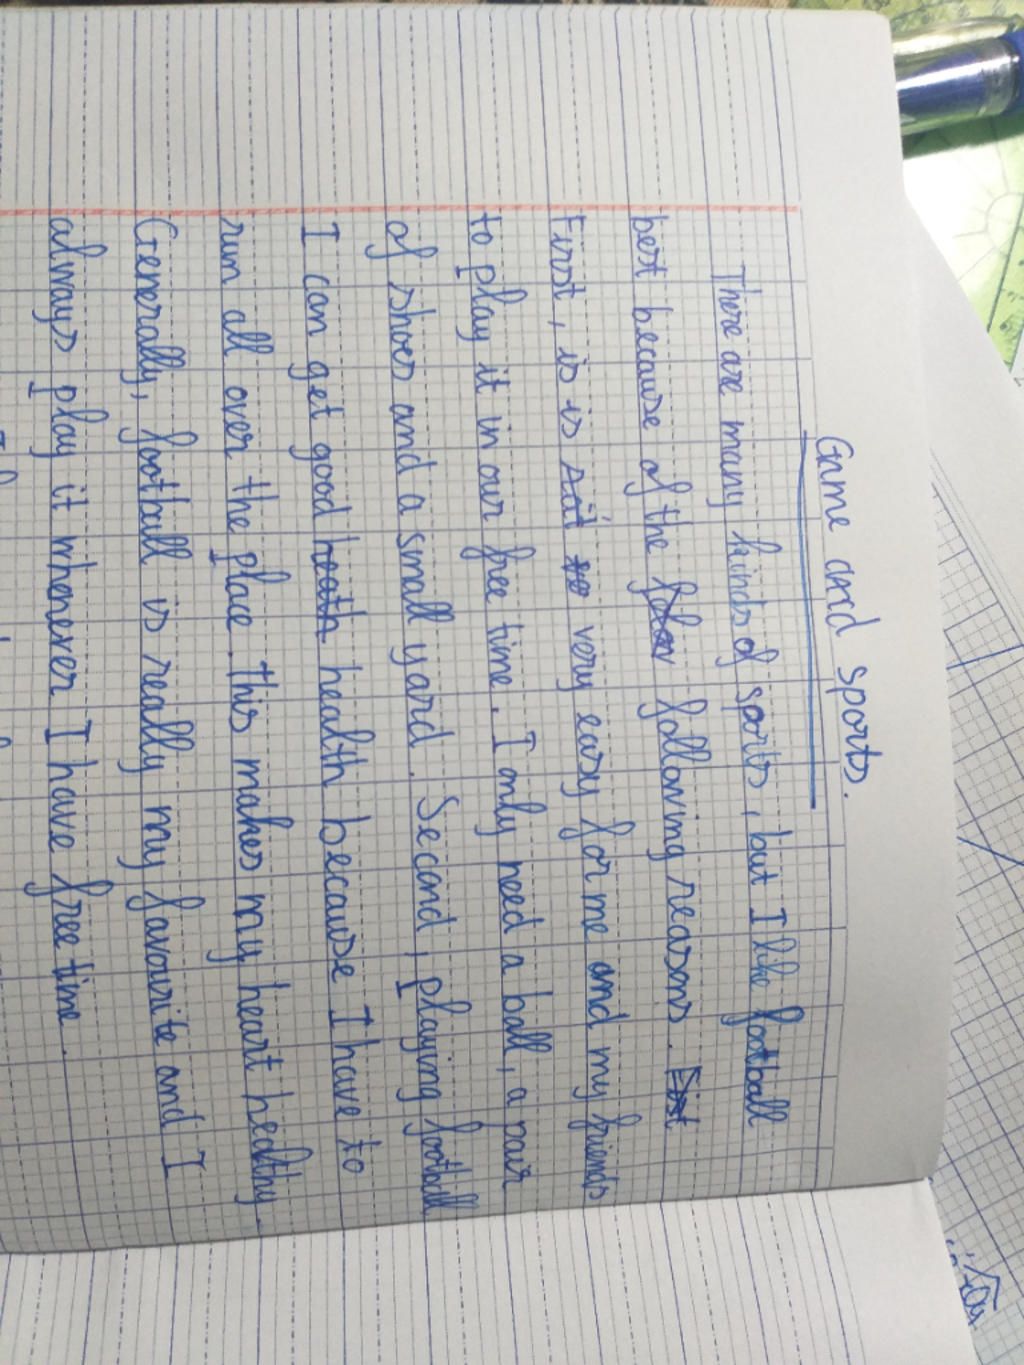 Game and sports.
There are many kinds of sports, but I like football
best because of the following reasons.
First, is is very easy for me and my friends
to play it in our free time. I only need a ball, a pair
of shoes and a small yard. Second, playing football
I can get good health because I have to
run all over the place. this makes my heart healthy.
Generally, football is really my favourite and I
always play it whenever I have free time.